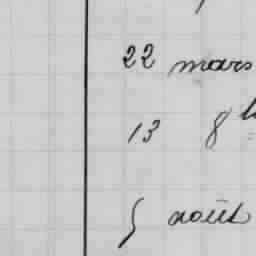 22 mars
13 8b
5 août